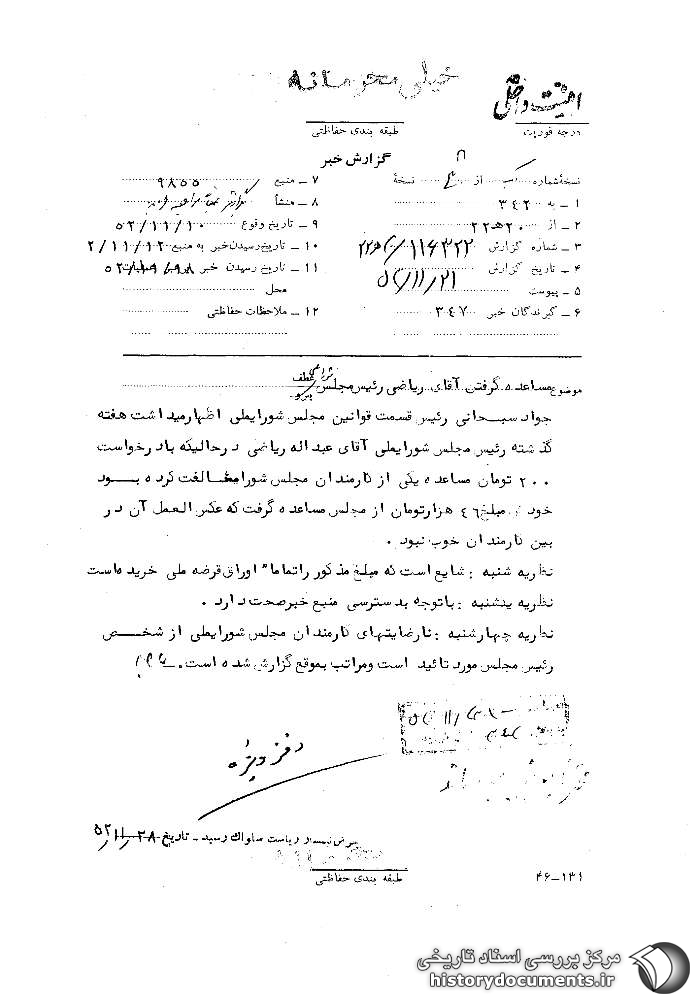 خیلی محرمانه
امنیت داخلی
درجه فوریت
طبقه بندی حفاظتی
گزارش خبر
نسخهٔ شماره از نسخهٔ
۱ ـ به ۳۴۲
۲ ـ از ۲۰ هـ ۲۲
۳ ـ شماره گزارش ۱۱۶۳۲۲
۴ ـ تاریخ گزارش ۵۲/۱۱/۲۱
۵ ـ پیوست
۶ ـ گیرندگان خبر ۳۴۷
۷ ـ منبع ۹۸۵۵
۸ ـ منشأ
۹ ـ تاریخ وقوع ۵۲/۱۱/۱۰
۱۰ ـ تاریخ رسیدن خبر به منبع ۲/۱۱/۱۲
۱۱ ـ تاریخ رسیدن خبر
محل
۱۲ ـ ملاحظات حفاظتی
موضوع مساعده گرفتن آقای ریاضی رئیس مجلس
جواد سبحانی رئیس قسمت قوانین مجلس شورایملی اظهار میداشت هفته
گذشته رئیس مجلس شورایملی آقای عبداله ریاضی درحالیکه بادرخواست
۲۰۰ تومان مساعده یکی از کارمندان مجلس شورا مخالفت کرده بود
خود مبلغ ٤٦ هزارتومان از مجلس مساعده گرفت که عکس العمل آن در
بین کارمندان خوب نبود .
نظریه شنبه : شایع است که مبلغ مذکور را تماما" اوراق قرضه ملی خریده است
نظریه یکشنبه : باتوجه بدسترسی منبع خبر صحت دارد .
نظریه چهارشنبه : نارضایتیهای کارمندان مجلس شورایملی از شخص
رئیس مجلس مورد تائید است ومراتب بموقع گزارش شده است .
دفتر ویژه
بعرض تیمسار ریاست ساواک رسید ـ تاریخ ۵۲/۱۱/۲۸
طبقه بندی حفاظتی
۴۶-۱۳۱
مرکز بررسی اسناد تاریخی
historydocuments.ir